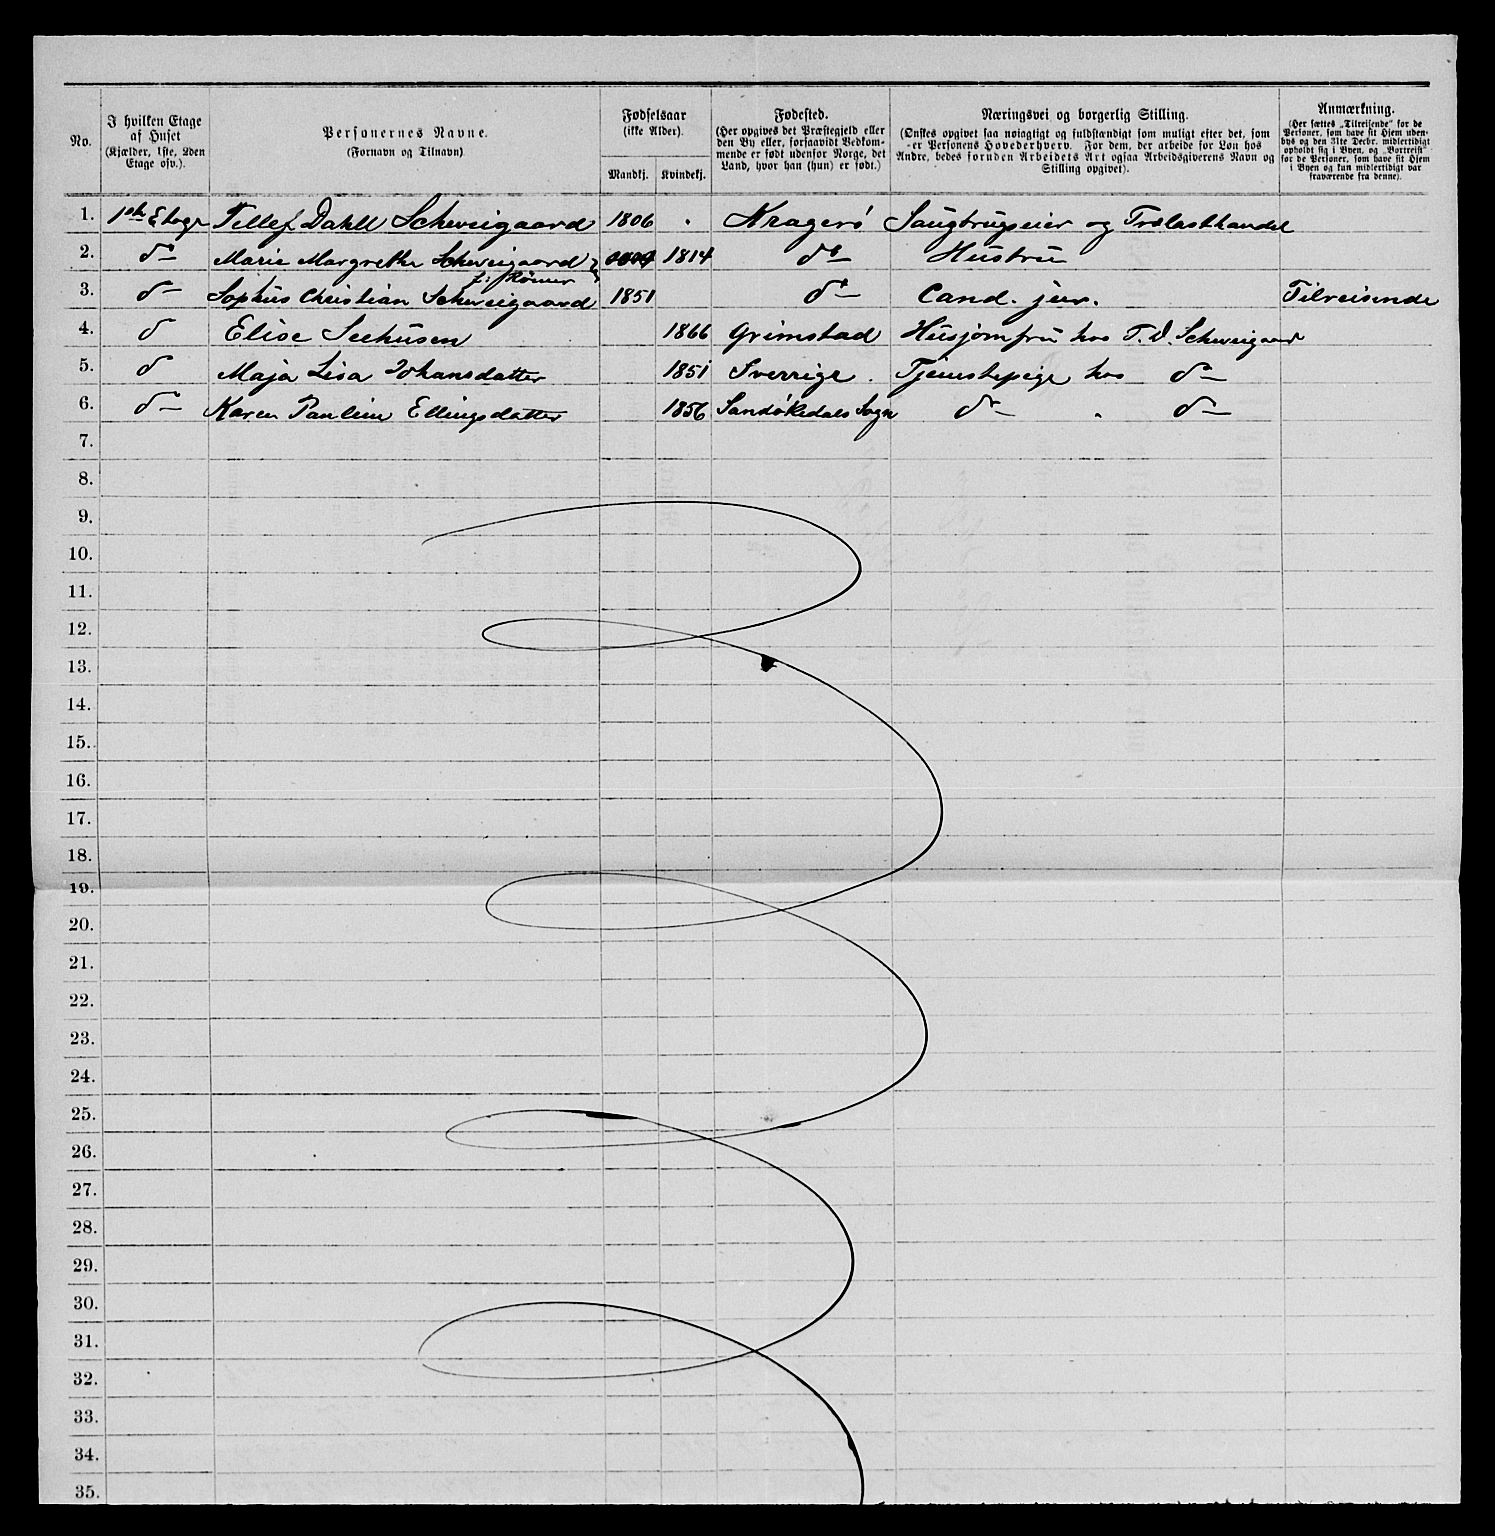 No.
I hvilken Etage af Huset
(Kjælder, 1ste, 2den Etage osv.).
Personernes Navne.
(Fornavn og Tilnavn)
Fødselsaar
(ikke Alder).
Mandkj. Kvindekj.
Fødested.
(Her opgives det Præstegjeld eller
den By eller, forsaavidt Vedkom-
mende er født udenfor Norge, det
Land, hvor han (hun) er født.)
Næringsvei og borgerlig Stilling.
(Ønskes opgivet saa nøiagtigt og fuldstændigt som muligt efter det, som
er Personens Hovederhverv. For dem, der arbeide for Løn hos
Andre, bedes foruden Arbeidets Art ogsaa Arbeidsgiverens Navn og
Stilling opgivet).
Anmærkning.
(Her sættes „Tilreisende“ for de
Personer, som have sit Hjem uden-
bys og den 31te Decbr. midlertidigt
opholdt sig i Byen, og „Bortreist“
for de Personer, som have sit Hjem
i Byen og kun midlertidigt var
fraværende fra denne).
1. 1ste Etage Tellef Dahll Schweigaard 1806 Kragerø Saugbrugseier og Trælasthandel
2. do Marie Margrethe Schweigaard 1814 do Hustru
f: Rømer
3. do Sophus Christian Schweigaard 1851 do Cand. jur. Tilreisende
4. do Elise Seehusen 1866 Grimstad Husjomfru hos T. D. Schweigaard
5. do Maja Lisa Johansdatter 1851 Sverrige. Tjenestepige hos do
6. do Karen Pauline Ellingsdatter 1856 Sandøkedals Sogn do " do
7.
8.
9.
10.
11.
12.
13.
14.
15.
16.
17.
18.
19.
20.
21.
22.
23.
24.
25.
26.
27.
28.
29.
30.
31.
32.
33.
34.
35.